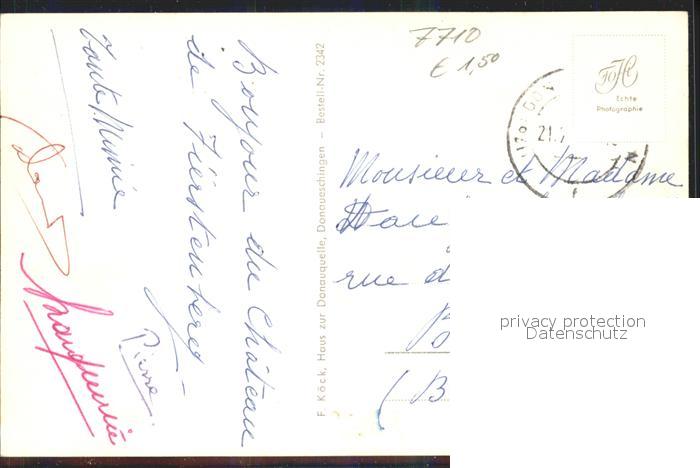 7710
€ 1,50
Echte
Photographie
21.
Bonjour du Château
de Fürstenberg
Tante Mimie
Pierre
F. Köck, Haus zur Donauquelle, Donaueschingen – Bestell-Nr. 2342
Monsieur et Madame
rue d
B
(B
privacy protection
Datenschutz